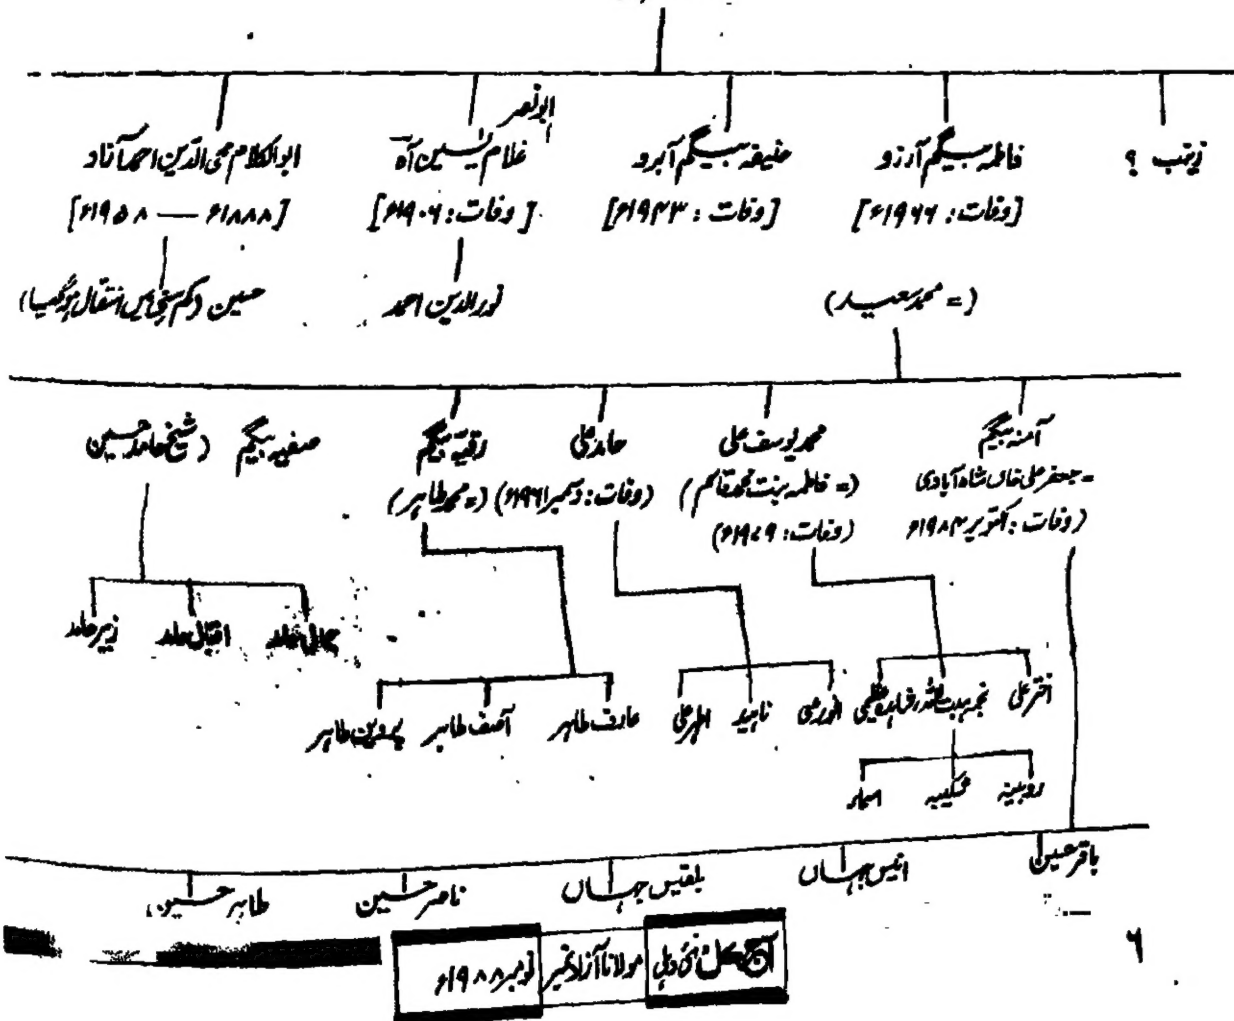 زینب ؟
فاطمہ بیگم آرزو
[وفات: ۱۹۶۶ء]
(= محمد سعید)
حنیفہ بیگم آبرو
[وفات: ۱۹۴۳ء]
ابونصر
غلام یٰسین آہ
[وفات: ۱۹۰۶ء]
نورالدین احمد
ابوالکلام محی الدین احمد آزاد
[۱۸۸۸ء — ۱۹۵۸ء]
حسین (کم سنی میں انتقال ہوگیا)
آمنہ بیگم
= جعفر علی خاں شاہ آبادی
(وفات: اکتوبر ۱۹۸۴ء)
محمد یوسف علی
(= فاطمہ بنت محمد قاسم)
(وفات: ۱۹۷۹ء)
حامد علی
(وفات: دسمبر ۱۹۶۱ء)
رقیہ بیگم
(= محمد طاہر)
صفیہ بیگم (شیخ حامد حسین
اختر علی
نجمہ ہبت اللہ
انور علی
ناہید
اطہر علی
عارف طاہر
آصف طاہر
پروین طاہر
اقبال حامد
زبیر حامد
روبینہ
شکیبہ
اسماء
باقر حسین
انیس جہاں
بلقیس جہاں
ناصر حسین
طاہر حسین
۶
آج کل نئی دہلی مولانا آزاد نمبر نومبر ۱۹۸۸ء